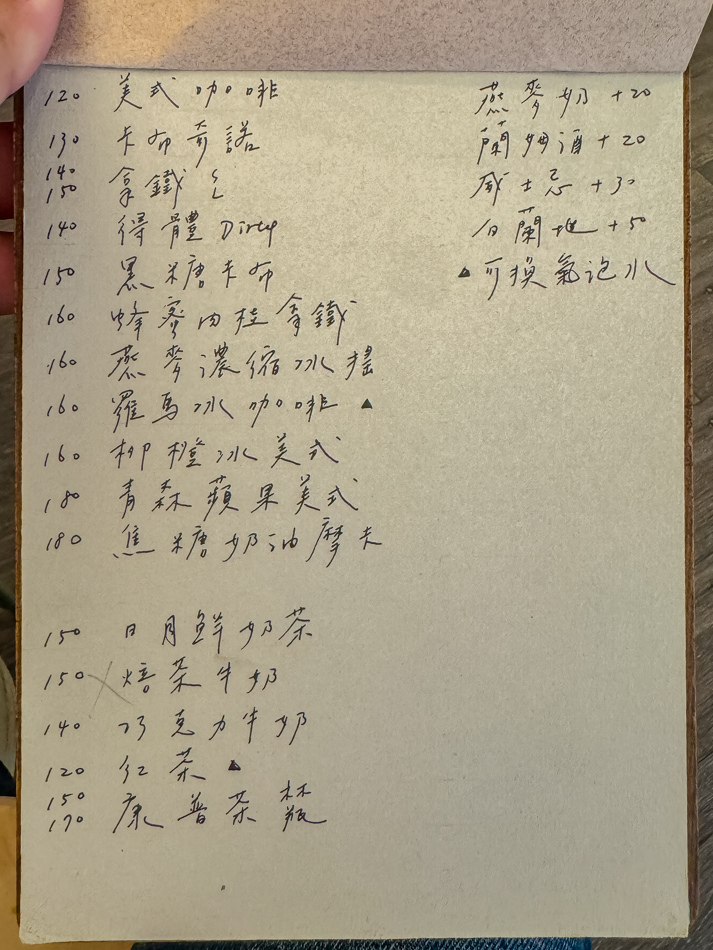 120 美式咖啡
130 卡布奇諾
140 150 拿鐵 S L
140 得體 Dirty
150 黑糖卡布
160 蜂蜜肉桂拿鐵
160 燕麥濃縮冰搖
160 羅馬冰咖啡 ▲
160 柳橙冰美式
180 青森蘋果美式
180 焦糖奶油摩卡
150 日月鮮奶茶
150 焙茶牛奶
140 巧克力牛奶
120 紅茶 ▲
150 170 康普茶 杯 瓶
燕麥奶 +20
蘭姆酒 +20
威士忌 +30
白蘭地 +50
▲ 可換氣泡水